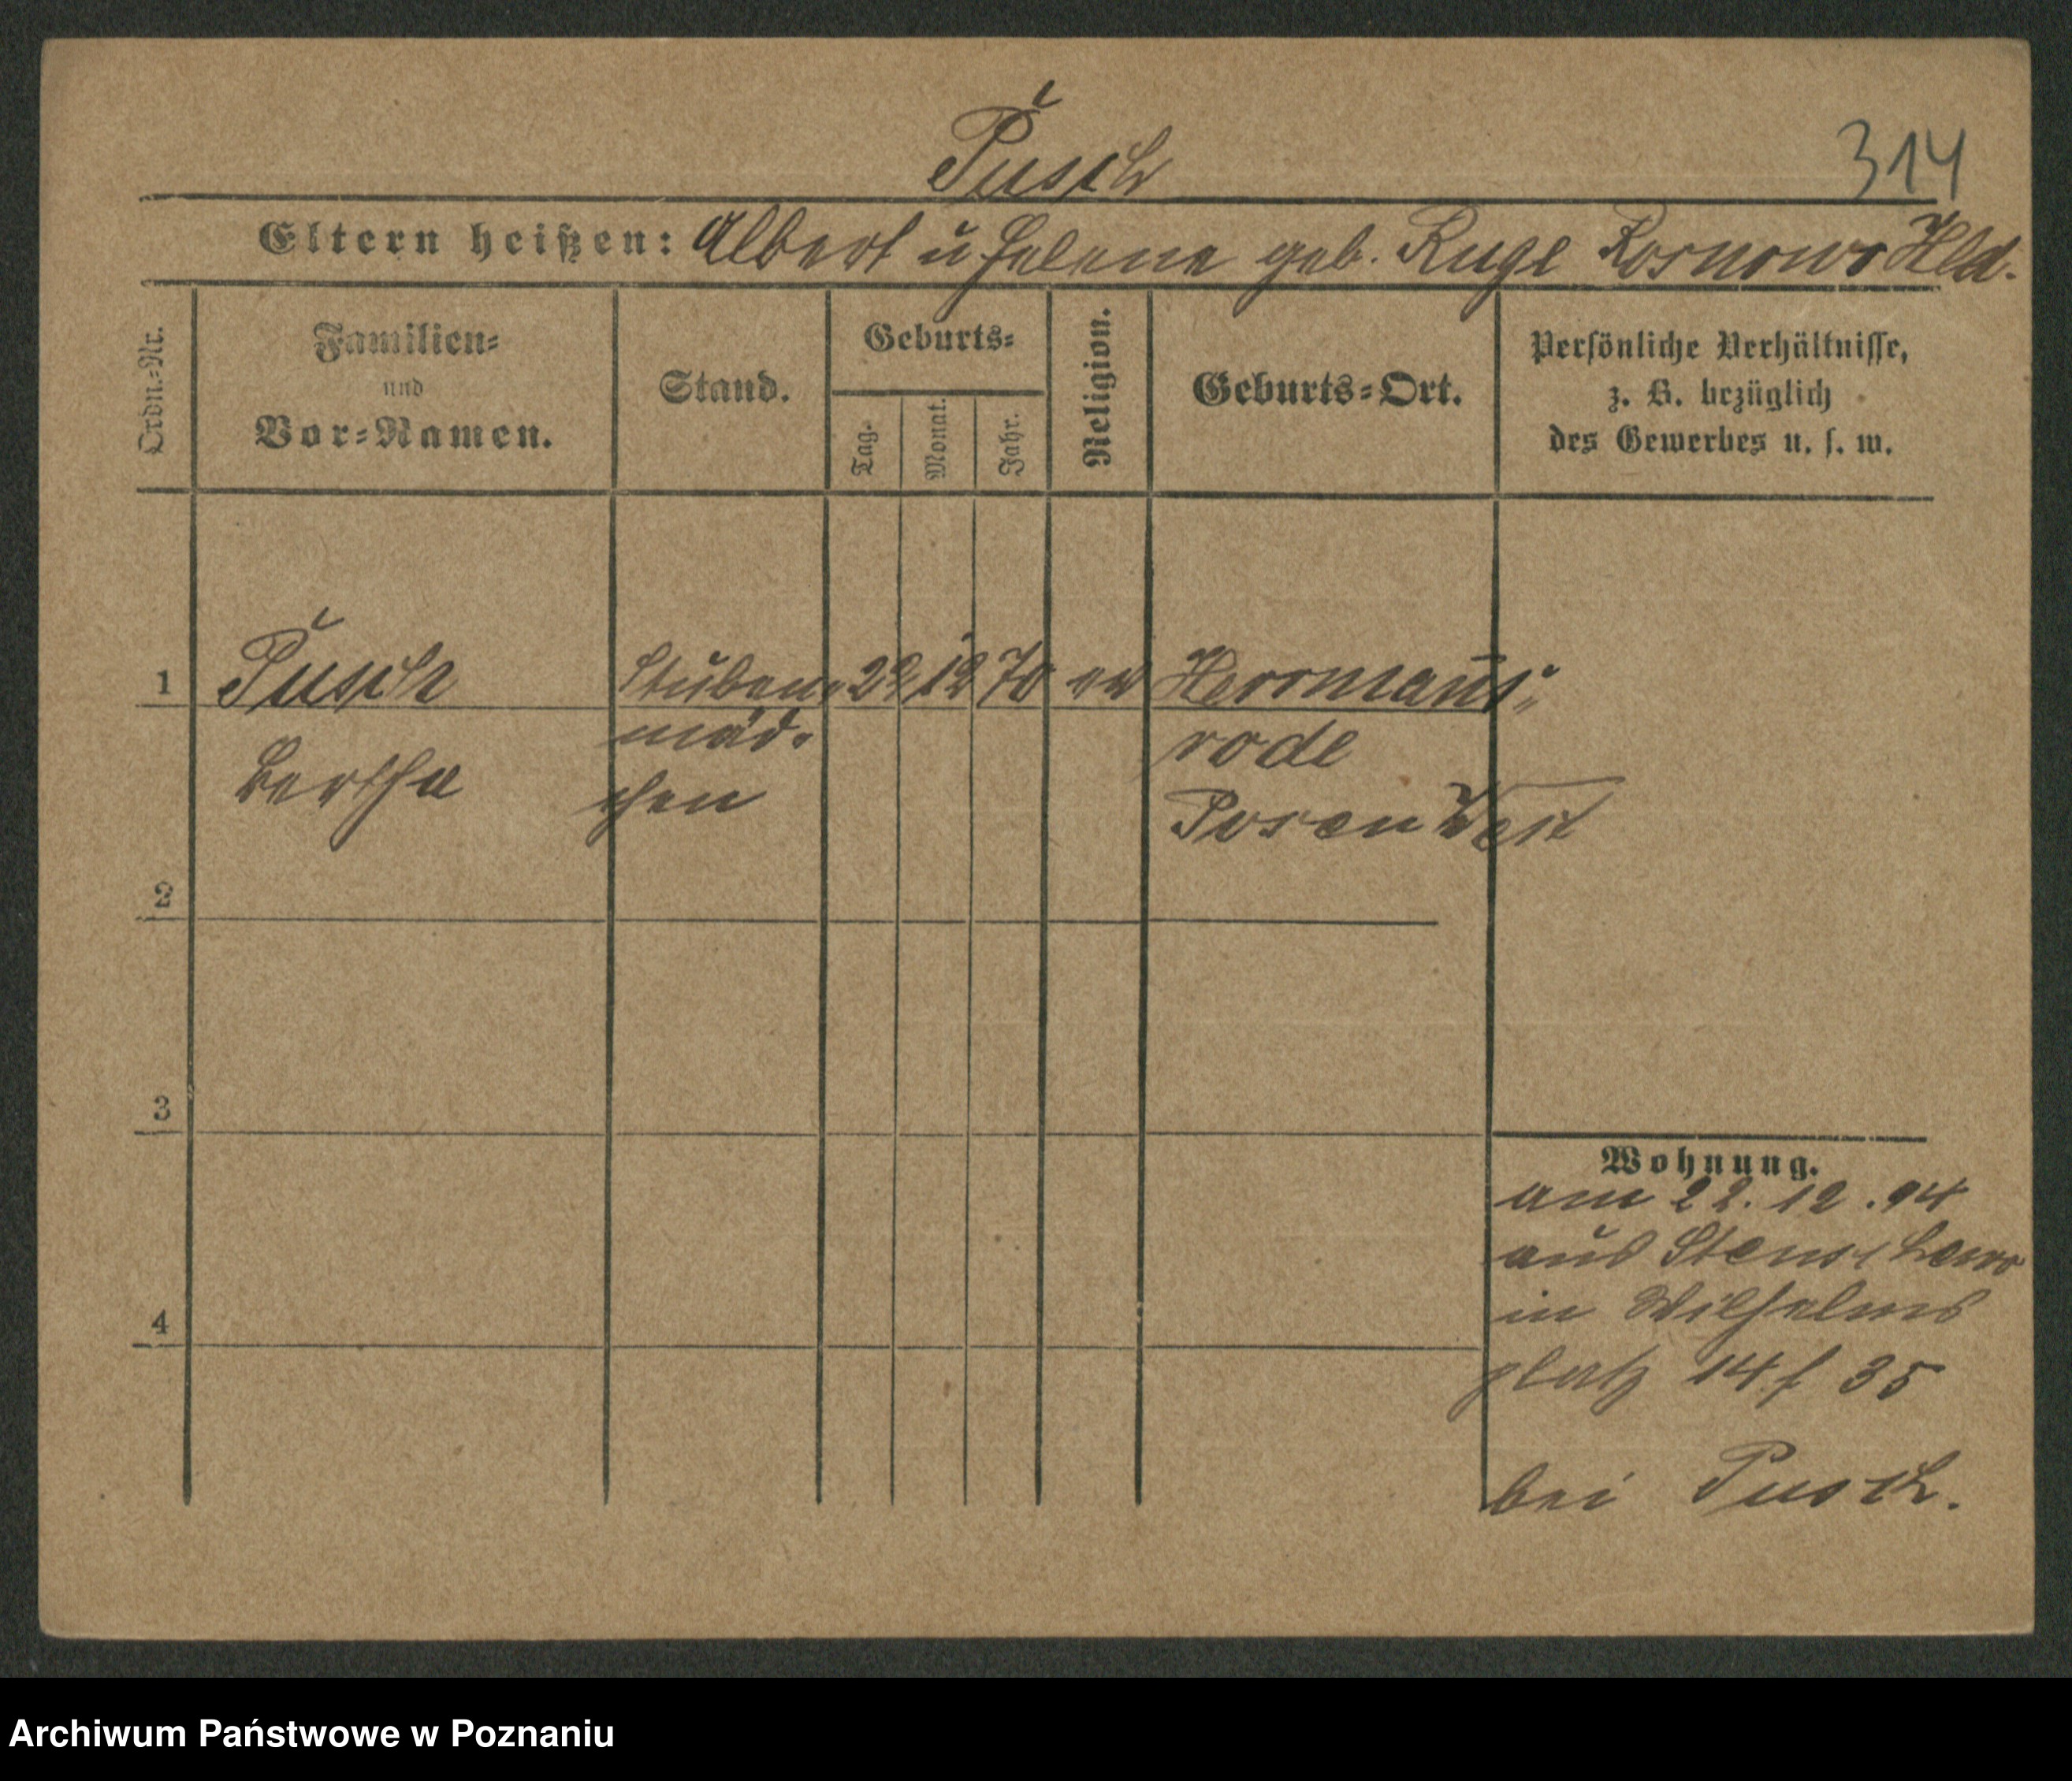 Pusch
314
Eltern heißen: Albert u Helene geb. Ruge Rosnowo Hld.
Ordn.-Nr.
Familien-
und
Vor-Namen.
Stand.
Geburts-
Tag.
Monat.
Jahr.
Religion.
Geburts-Ort.
Persönliche Verhältnisse,
z. B. bezüglich
des Gewerbes u. s. w.
1 Pusch Stuben- 22 12 70 ev Herrmans-
mäd- rode
Bertha chen Posen West
2
3
4
Wohnung.
am 22. 12. 94
aus
in Wilhelms
platz 14 f 35
bei Pusch.
Archiwum Państwowe w Poznaniu